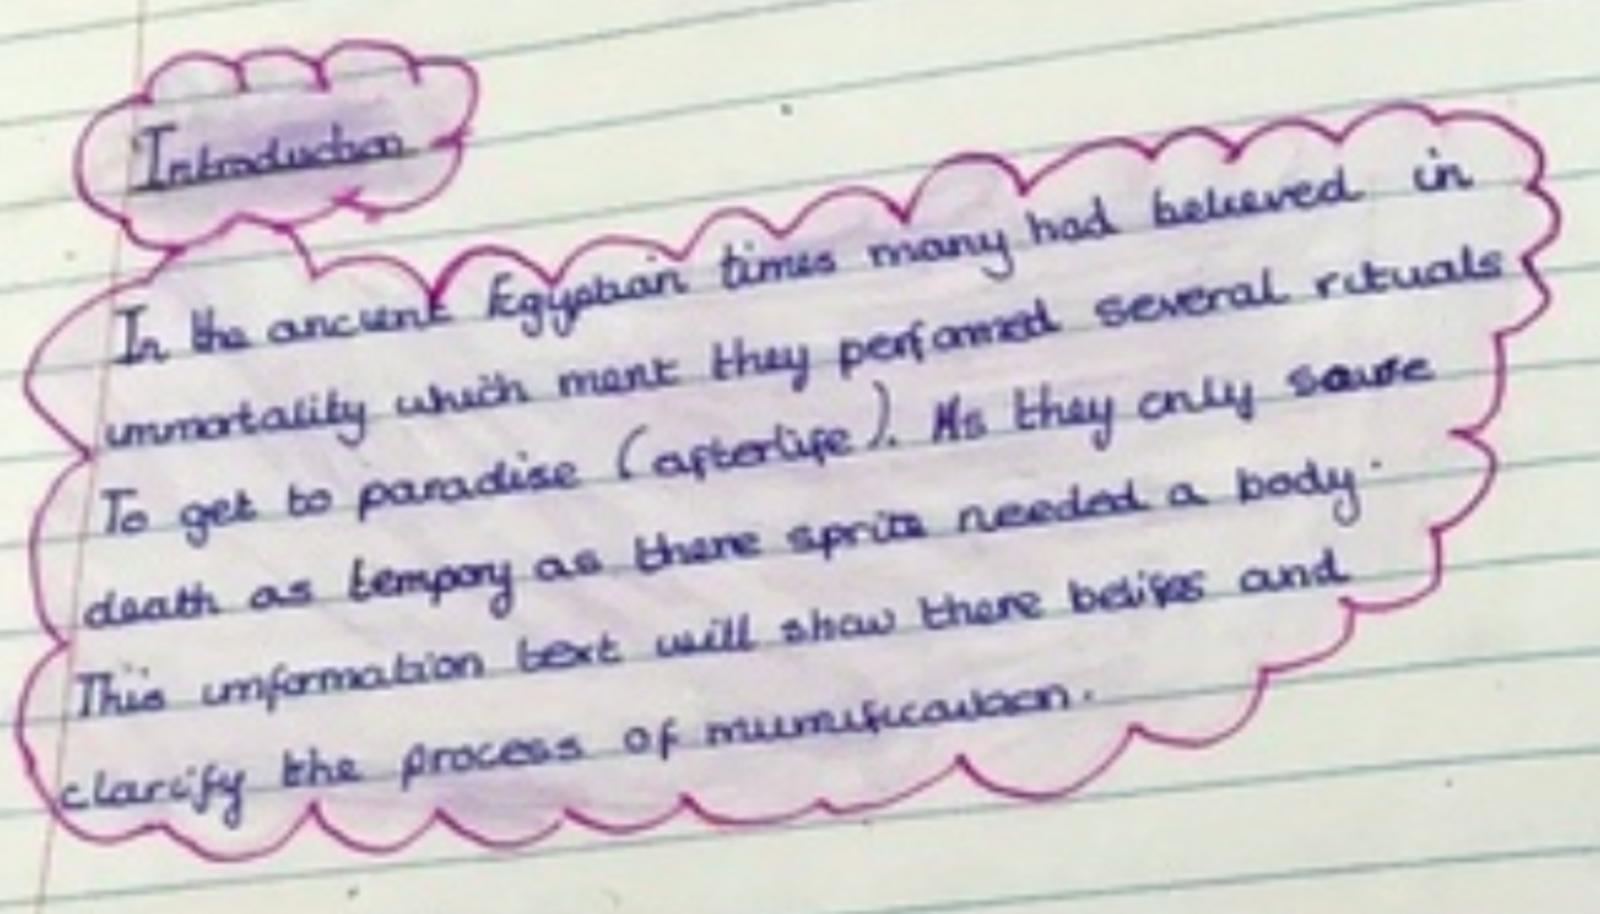 Introduction
In the ancient Egyptian times many had believed in
immortality which ment they performed several rituals
To get to paradise (afterlife). As they only sawe
death as tempory as there sprite needed a body.
This imformation text will show there belifes and
clarify the process of mumification.